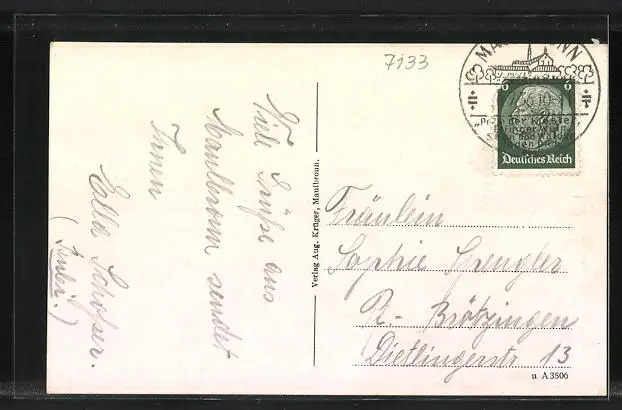 7133
Viele Grüße aus
Maulbronn sendet
Ihnen
Ella Schofer.
Verlag Aug. Krüger, Maulbronn.
MAULBRONN
6 6
Deutsches Reich
Fräulein
Sophie Spengler
Brötzingen
Dietlingerstr 13
u A 3506